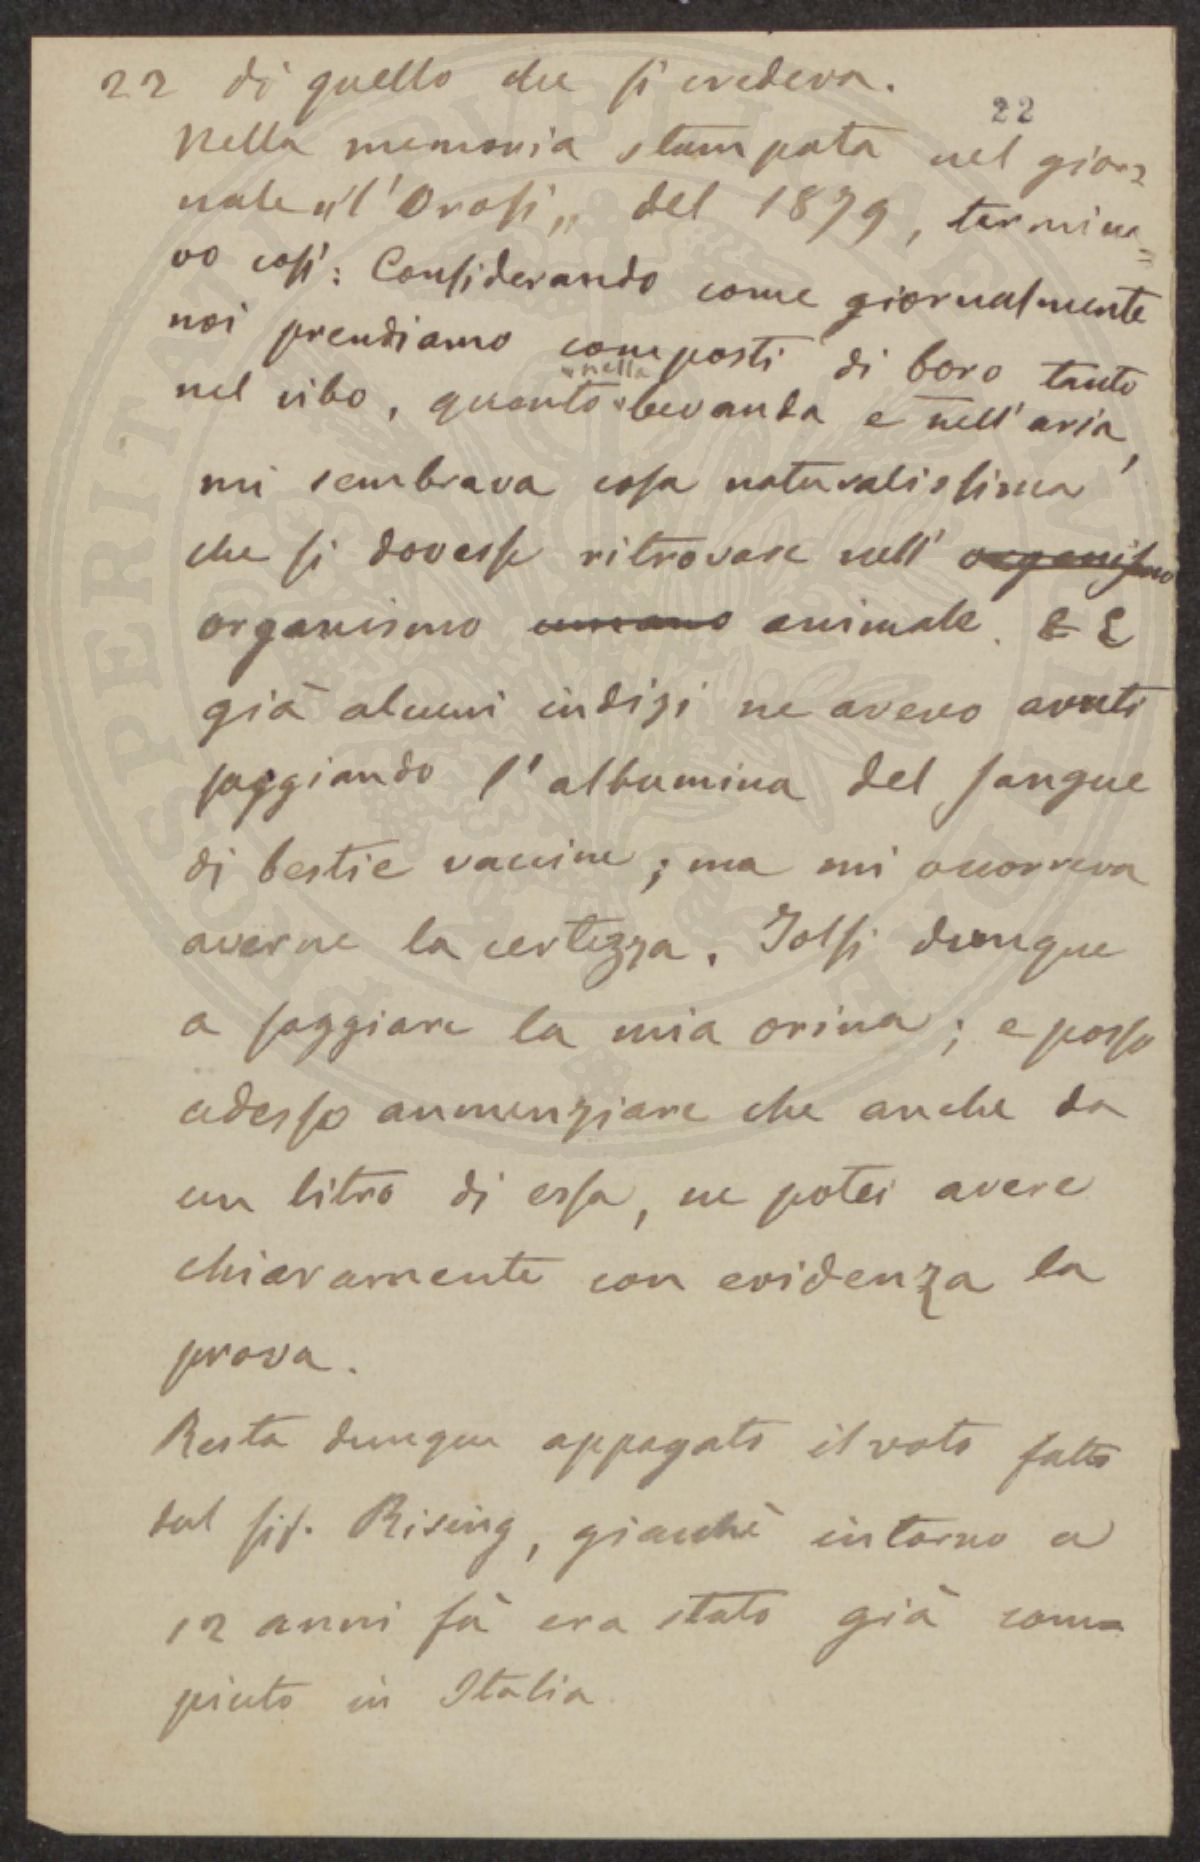 22 di quello che si credeva.
22
Nella memoria stampata nel gior=
nale "l'Orosi" del 1879, termina=
vo così: Considerando come giornalmente
noi prendiamo composti di boro tanto
nel cibo, quanto nella bevanda e nell'aria,
mi sembrava cosa naturalissima
che si dovesse ritrovare nell' organismo
organismo umano animale. E E
già alcuni indizi ne avevo avuti
saggiando l'albumina del sangue
di bestie vaccine; ma mi occorreva
averne la certezza. Tolsi dunque
a saggiare la mia orina; e posso
adesso annunziare che anche da
un litro di essa, ne potei avere
chiaramente con evidenza la
prova.
Resta dunque appagato il voto fatto
dal sig. Rising, giacchè intorno a
12 anni fà era stato già com=
piuto in Italia